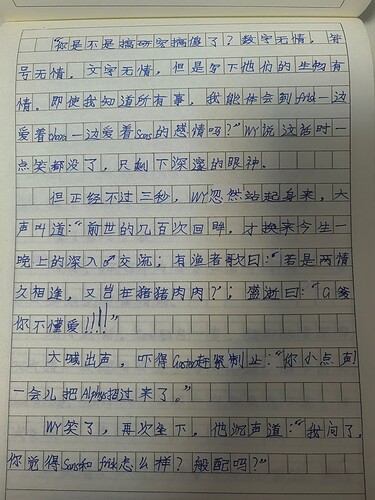 “你是不是搞研究搞傻了？数字无情，符
号无情，文字无情，但是写下他们的生物有
情。即使我知道所有事，我能体会到frisk一边
爱着chara一边爱着Sans的感情吗？”WY说这话时一
点笑都没了，只剩下深邃的眼神。
但正经不过三秒，WY忽然站起身来，大
声叫道：“前世的几百次回眸，才换来今生一
晚上的深入♂交流；有渔者歌曰：‘若是两情
久相逢，又岂在猪猪肉肉？’；盛逝曰：‘G爹
你不懂爱！！！！’”
大喊出声，吓得Gaster赶紧制止：“你小点声！
一会儿把Alphys招过来了。”
WY笑了，再次坐下，他沉声道：“我问了，
你觉得Sans和frisk怎么样？般配吗？”